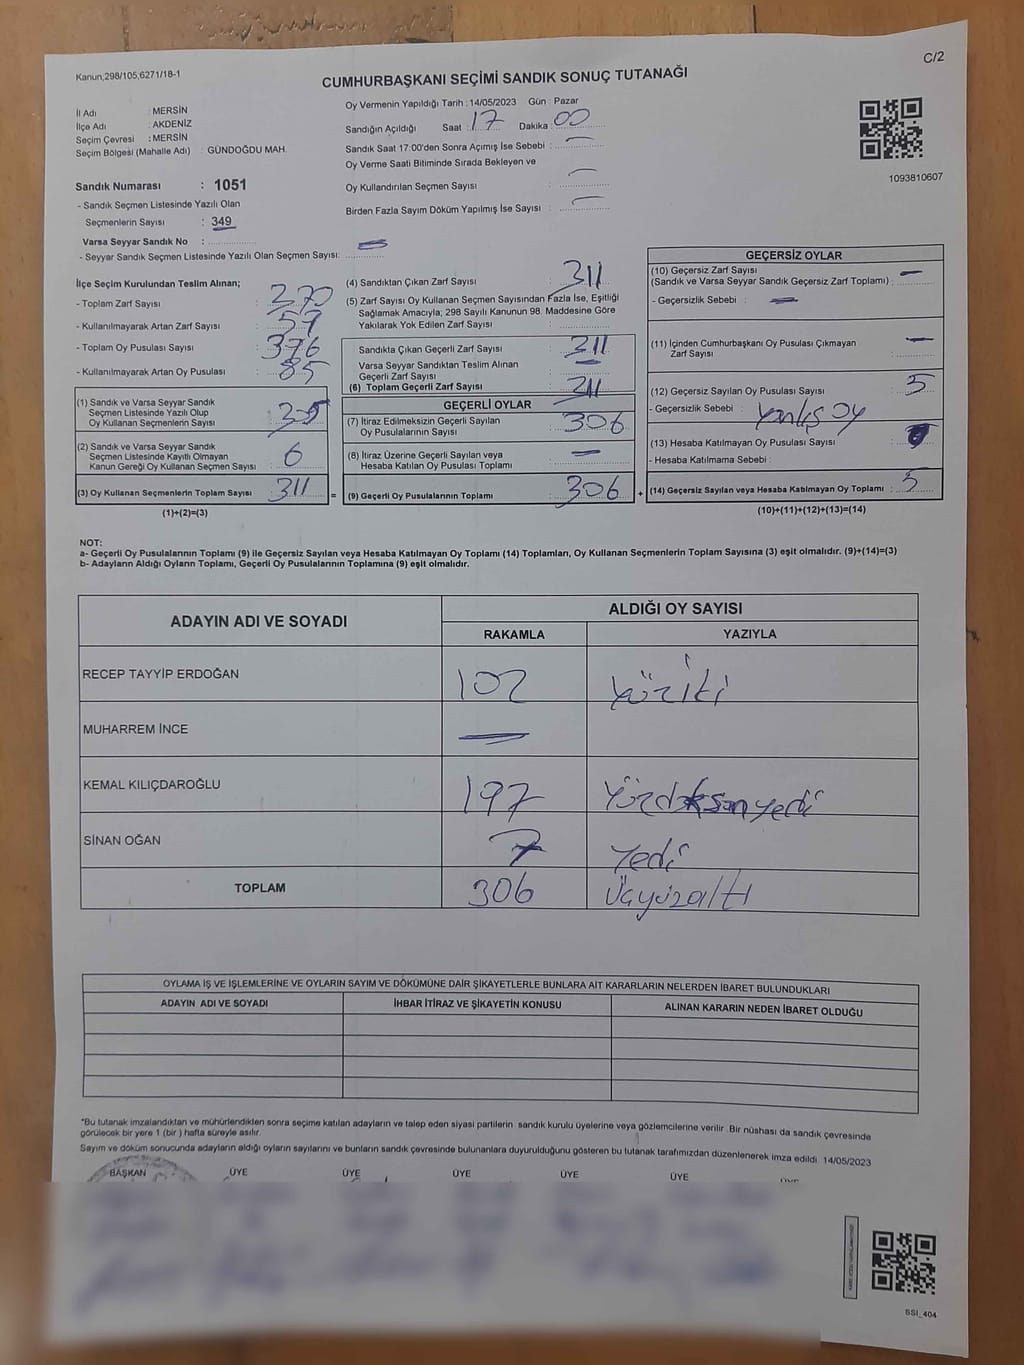 Kanun,298/105,6271/18-1
C/2
CUMHURBAŞKANI SEÇİMİ SANDIK SONUÇ TUTANAĞI
İl Adı : MERSİN
İlçe Adı : AKDENİZ
Seçim Çevresi : MERSİN
Seçim Bölgesi (Mahalle Adı) : GÜNDOĞDU MAH.
Oy Vermenin Yapıldığı Tarih : 14/05/2023 Gün : Pazar
Sandığın Açıldığı Saat : 17 Dakika : 00
Sandık Saat 17:00'den Sonra Açımış İse Sebebi : —
Oy Verme Saati Bitiminde Sırada Bekleyen ve
Oy Kullandırılan Seçmen Sayısı : —
Birden Fazla Sayım Döküm Yapılmış İse Sayısı : —
1093810607
Sandık Numarası : 1051
- Sandık Seçmen Listesinde Yazılı Olan
Seçmenlerin Sayısı : 349
Varsa Seyyar Sandık No :
- Seyyar Sandık Seçmen Listesinde Yazılı Olan Seçmen Sayısı: —
İlçe Seçim Kurulundan Teslim Alınan;
- Toplam Zarf Sayısı : 370
- Kullanılmayarak Artan Zarf Sayısı : 59
- Toplam Oy Pusulası Sayısı : 396
- Kullanılmayarak Artan Oy Pusulası : 85
(1) Sandık ve Varsa Seyyar Sandık
Seçmen Listesinde Yazılı Olup
Oy Kullanan Seçmenlerin Sayısı : 305
(2) Sandık ve Varsa Seyyar Sandık
Seçmen Listesinde Kayıtlı Olmayan
Kanun Gereği Oy Kullanan Seçmen Sayısı : 6
(3) Oy Kullanan Seçmenlerin Toplam Sayısı : 311
(1)+(2)=(3)
(4) Sandıktan Çıkan Zarf Sayısı : 311
(5) Zarf Sayısı Oy Kullanan Seçmen Sayısından Fazla İse, Eşitliği
Sağlamak Amacıyla; 298 Sayılı Kanunun 98. Maddesine Göre
Yakılarak Yok Edilen Zarf Sayısı :
Sandıkta Çıkan Geçerli Zarf Sayısı : 311
Varsa Seyyar Sandıktan Teslim Alınan
Geçerli Zarf Sayısı : —
(6) Toplam Geçerli Zarf Sayısı : 311
GEÇERLİ OYLAR
(7) İtiraz Edilmeksizin Geçerli Sayılan
Oy Pusulalarının Sayısı : 306
(8) İtiraz Üzerine Geçerli Sayılan veya
Hesaba Katılan Oy Pusulası Toplamı : —
= (9) Geçerli Oy Pusulalarının Toplamı : 306 +
GEÇERSİZ OYLAR
(10) Geçersiz Zarf Sayısı
(Sandık ve Varsa Seyyar Sandık Geçersiz Zarf Toplamı) : —
- Geçersizlik Sebebi : —
(11) İçinden Cumhurbaşkanı Oy Pusulası Çıkmayan
Zarf Sayısı : —
(12) Geçersiz Sayılan Oy Pusulası Sayısı : 5
- Geçersizlik Sebebi : Yanlış oy
(13) Hesaba Katılmayan Oy Pusulası Sayısı :
- Hesaba Katılmama Sebebi :
(14) Geçersiz Sayılan veya Hesaba Katılmayan Oy Toplamı : 5
(10)+(11)+(12)+(13)=(14)
NOT:
a- Geçerli Oy Pusulalarının Toplamı (9) ile Geçersiz Sayılan veya Hesaba Katılmayan Oy Toplamı (14) Toplamları, Oy Kullanan Seçmenlerin Toplam Sayısına (3) eşit olmalıdır. (9)+(14)=(3)
b- Adayların Aldığı Oyların Toplamı, Geçerli Oy Pusulalarının Toplamına (9) eşit olmalıdır.
ADAYIN ADI VE SOYADI
ALDIĞI OY SAYISI
RAKAMLA YAZIYLA
RECEP TAYYİP ERDOĞAN 102 Yüziki
MUHARREM İNCE —
KEMAL KILIÇDAROĞLU 197 Yüzdoksanyedi
SİNAN OĞAN 7 Yedi
TOPLAM 306 Üçyüzaltı
OYLAMA İŞ VE İŞLEMLERİNE VE OYLARIN SAYIM VE DÖKÜMÜNE DAİR ŞİKAYETLERLE BUNLARA AİT KARARLARIN NELERDEN İBARET BULUNDUKLARI
ADAYIN ADI VE SOYADI İHBAR İTİRAZ VE ŞİKAYETİN KONUSU ALINAN KARARIN NEDEN İBARET OLDUĞU
*Bu tutanak imzalandıktan ve mühürlendikten sonra seçime katılan adayların ve talep eden siyasi partilerin sandık kurulu üyelerine veya gözlemcilerine verilir. Bir nüshası da sandık çevresinde
görülecek bir yere 1 (bir) hafta süreyle asılır.
Sayım ve döküm sonucunda adayların aldığı oyların sayılarını ve bunların sandık çevresinde bulunanlara duyurulduğunu gösteren bu tutanak tarafımızdan düzenlenerek imza edildi. 14/05/2023
BAŞKAN ÜYE ÜYE ÜYE ÜYE ÜYE ÜYE
SSI_404